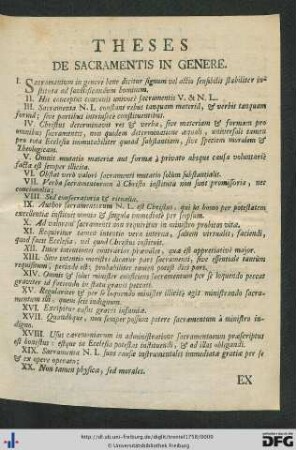 THESES
DE SACRAMENTIS IN GENERE.
I. Sacramentum in genere bene dicitur signum vel actio sensibilis stabiliter in-
stituta ad sanctificandum hominem.
II. Hic conceptus communis univocè sacramentis V. & N. L.
III. Sacramenta N. L. constant rebus tanquam materiâ, & verbis tanquam
formâ; sive partibus intrinsecè constituentibus.
IV. Christus determinavit res & verba, sive materiam & formam pro
omnibus sacramentis, non quidem determinatione aquali, universali tamen
pro tota Ecclesia immutabilitate quoad substantiam, sive speciem moralem &
Theologicam.
V. Omnis mutatio materiæ aut formæ à privato absque causa voluntariè
facta est semper illicita.
VI. Obstat verò valori sacramenti mutatio solùm substantialis.
VII. Verba sacramentorum à Christo instituta non sunt promissoria, nec
concionalia;
VIII. Sed consecratoria & ritualia.
IX. Author sacramentorum N. L. est Christus, qui ut homo per potestatem
excellentiæ instituit omnia & singula immediatè per seipsum.
X. Ad valorem sacramenti non requiritur in ministro probitas vitæ,
XI. Requiritur tamen intentio vera interna, saltem virtualis, faciendi,
quod facit Ecclesia, vel quod Christus instituit.
XII. Inter intentiones contrarias prævalet, quæ est appretiativè major.
XIII. Sine intentio ministri dicatur pars sacramenti, sive essentiale tantùm
requisitum, perinde est; probabiliter tamen potest dici pars.
XIV. Omnis & solus minister ex officio sacramentorum per se loquendo peccat
graviter ad faciendo in statu gravis peccati.
XV. Regulariter & per se loquendo minister illicitè agit ministrando sacra-
mentum illi, quem scit indignum.
XVI. Excipitur casus gravis infamiæ.
XVII. Quandoque, non semper possunt petere sacramentum à ministro in-
digno.
XVIII. Usus cæremoniarum in administratione sacramentorum præscriptus
est honestus: estque in Ecclesia potestas instituendi, & ad illas obligandi.
XIX. Sacramenta N. L. sunt causæ instrumentales immediatæ gratiæ per se
& ex opere operato;
XX. Non tamen physicæ, sed morales.
EX
http://dl.ub.uni-freiburg.de/diglit/trentel1758/0009
© Universitätsbibliothek Freiburg
gefördert durch
DFG